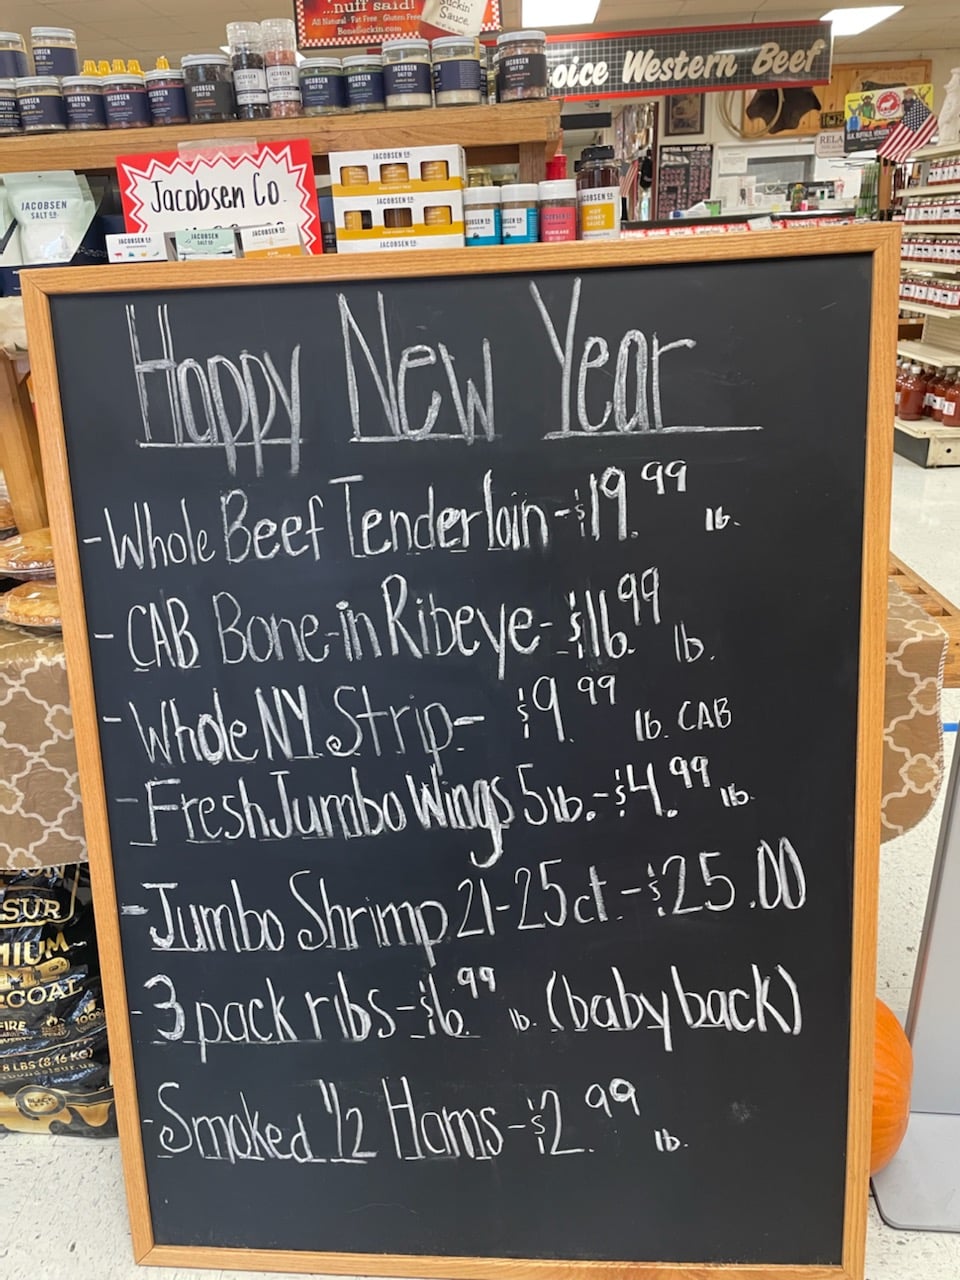 ...nuff said!
All Natural Fat Free Gluten Free
BoneSuckin.com
Suckin'
Sauce
oice Western Beef
JACOBSEN
SALT CO.
Jacobsen Co.
JACOBSEN
SALT CO.
JACOBSEN CO.
JACOBSEN CO.
JACOBSEN CO.
HOT
HONEY
SAUCE
RELA
Happy New Year
- Whole Beef Tenderloin - $19.99 lb.
- CAB Bone-in Ribeye - $16.99 lb.
- Whole NY Strip - $9.99 lb. CAB
- Fresh Jumbo Wings 5 lb. - $4.99 lb.
- Jumbo Shrimp 21-25 ct. - $25.00
- 3 pack ribs - $6.99 lb. (baby back)
- Smoked 1/2 Hams - $2.99 lb.
ON
SUR
MIUM
COAL
FIRE
100%
8 LBS (8,16 KG)